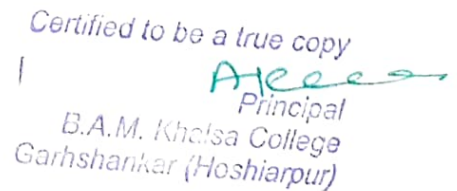 Certified to be a true copy
Principal
B.A.M. Khalsa College
Garhshankar (Hoshiarpur)